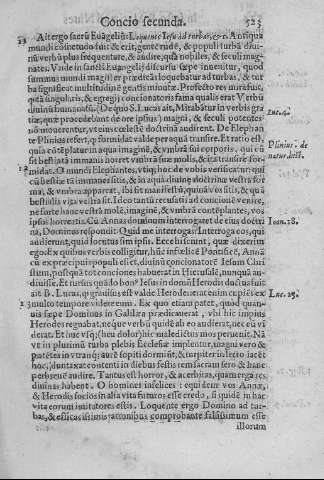 Concio secunda. 523
A tergo sacrū Euāgeliū: Loquente Iesu ad turbas, &c. Antiqua
mundi cōsuetudo fuit & erit, gentē rudē, & populi turbā diui-
nū verbū plus frequentare, & audire, quā nobiles, & seculi mag-
nates. Vnde in sancti Euangelij discursu sæpe inuenitur, quod
summa mundi magister prædicās loquebatur ad turbas, & tur-
ba significat multitudinē gentis minutæ. Profecto res miraruit,
q̄ tā singularis, & egregij concionatoris fama qualis erat Verbū
diuinū humanatū. De quo S. Lucas ait, Mirabātur in verbis gra-
tiæ, quæ procedebant de ore ipsius) magni, & seculi potentes
nō mouerentur, vt eius cœlestē doctrinā audirēt. De Elephan
te Plinius refert, q̄ formidat valde per aquā transire. Et ratio est,
quia cōtēplatur in aqua imaginē, & vmbrā sui corporis, qui cū
sit bestia tā immanis horret vmbrā suæ molis, & ita transire for-
midat. O mundi Elephantes, vtiq; hoc de vobis verificatur: qui
cū bestiæ tā immanes sitis, & in aqua diuinæ doctrinæ vestra for
ma, & vmbra appareat, ibi sit manifestū, quina vos sitis, & quā
bestialis vita vestra sit. Ideo tantū recusatis ad concionē venire,
ne forte hanc vestrā molē, imaginē, & vmbrā contēplantes, vos
ipsos horreatis. Cū Annas dominum interrogaret de eius doctri
na, Dominus respondit: Quid me interrogas? Interroga eos, qui
audierunt, quid locutus sim ipsis. Ecce hi sciunt, quæ dixerim
ego. Ex quibus verbis colligitur, hūc infælicē Pontificē, Annā
cū ex præcipuis populi esset, diuinū concionatorē Iesum Chri
stum, postquā tot conciones habuerat in Hierusalē, nunquā au-
diuisse. Et rursus quā do bon⁹ Iesus in domū Herodis ductus fuit
ait B. Lucas, q̄ gauisus est valde Herodes: erat enim cupiēs ex
multo tempore videre eum. Ex quo etiam patet, quod quan-
uis sæpe Dominus in Galilæa prædicauerat, vbi hic impius
Herodes regnabat, neque verbū quidē ab eo audierat, nec eū vi
derat. Et huc vsq; (heu dolor) hic maledictus mos peruenit. Nā
ve in plurimū turba plebis Ecclesiæ implentur,
patētes in vtranq; aurē sopiti dormiūt, & turpiter in lecto iacēt
hoc, duntaxat contenti in diebus festis rem sacram fero & hanc
perbreuē audire. Tantus est horror, & acerbitas, quam erga res
diuinas habent. O homines infelices: equidem vos Annæ,
& Herodis socios in alia vita futuros esse credo, si quidē in hac
vita eorum imitatores estis. Loquente ergo Domino ad tur-
bas, & efficacissimis rationibus comprobante falsissimum esse
illorum
Luc. 4.
Plinius de
natur. hist.
Ioan. 18.
Luc. 23.